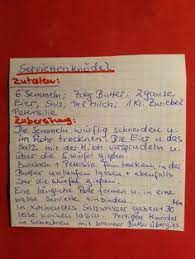 Serviettenknödel
Zutaten:
6 Semmeln, 7 dkg Butter, 2 ganze
Eier, Salz, Milch, 1 kl. Zwiebel
Petersilie
Zubereitung:
Die Semmeln würflig schneiden u.
im Rohr trocknen. Die Eier u. das
Salz mit der Milch versprudeln u.
über die Würfel gießen.
Zwiebel + Petersilie fein hacken in der
Butter anlaufen lassen + ebenfalls
über die Würfel gießen.
Eine längliche Rolle formen u. in eine
nasse Serviette einbinden.
In kochendes Salzwasser geben +
kochen lassen. Fertigen Knödel
in Scheiben mit brauner Butter übergießen